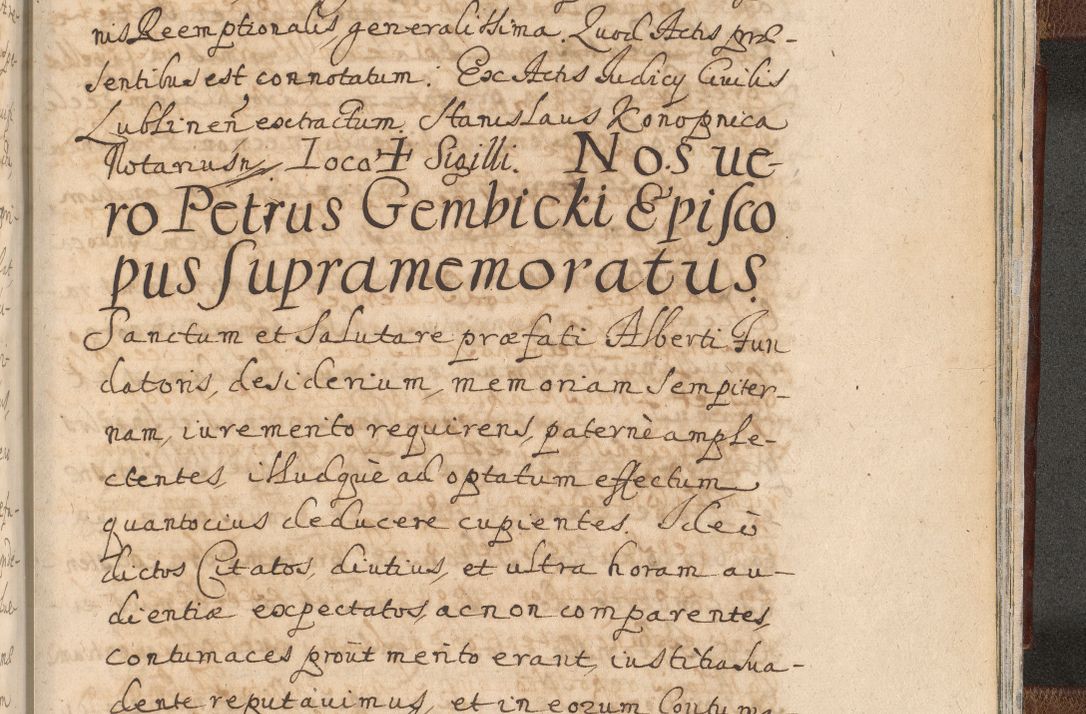 nis Reemptionalis, generalissima. Quod Actis præ-
sentibus est connotatum. Ex Actis Iudicij Civilis
Lublinen̄ extractum. Stanislaus Konopnica
Notarius Loco ✝ Sigilli. Nos ve-
ro Petrus Gembicki Episco
pus supramemoratus.
Sanctum et salutare præfati Alberti Fun
datoris, desiderium, memoriam sempiter-
nam, iure merito requirens, paternè ample-
ctentes illudquè ad optatum effectum
quantocius deducere cupientes. Ideo
dictos Citatos, diutius, et ultra horam au-
dientiæ expectatos, ac non comparentes,
contumaces proūt merito erant, iustitia sua-
dente reputavimus, et in eorum Contuma